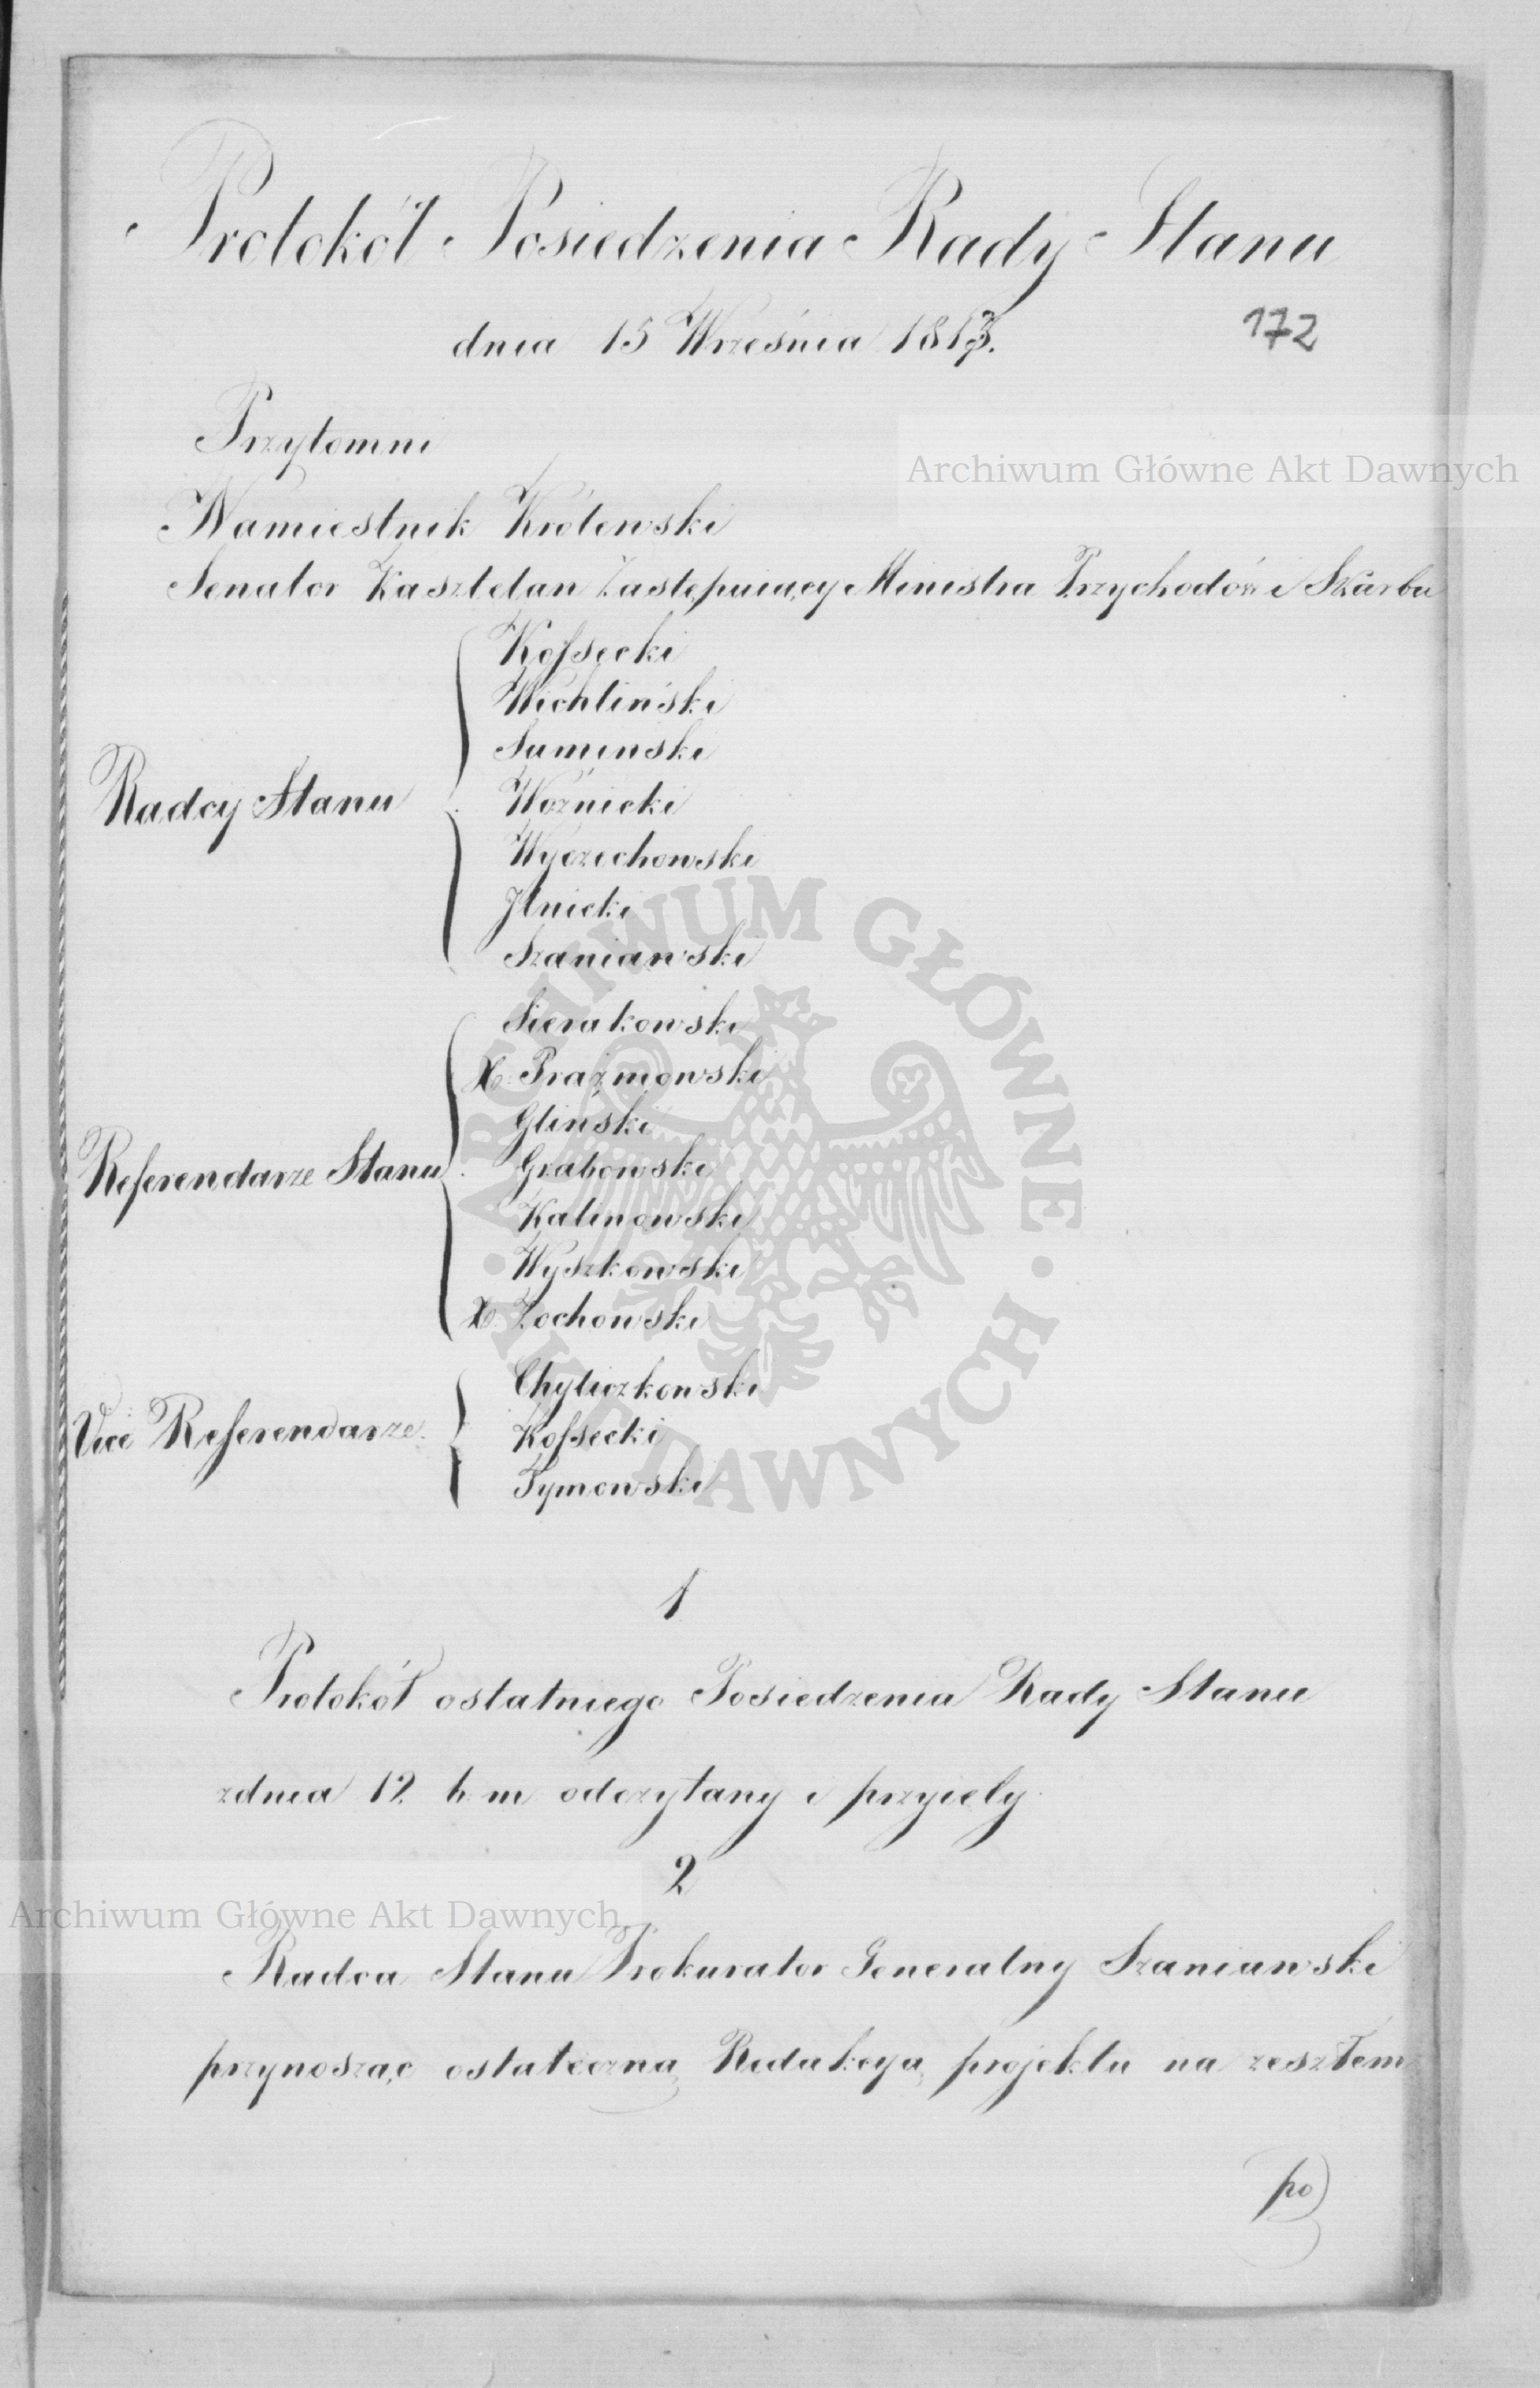 Protokół Posiedzenia Rady Stanu
dnia 15 Września 1813.
172
Przytomni
Archiwum Główne Akt Dawnych
Namiestnik Królewski
Senator Kasztelan Zastępuiący Ministra Przychodów i Skarbu
Radcy Stanu
Kofsecki
Michliński
Sumiński
Woźnicki
Wyczechowski
Ilnicki
Szaniawski
Referendarze Stanu
Sierakowski
X. Prażmowski
Gliński
Grabowski
Kalinowski
Wyszkowski
X. Zochowski
Vice Referendarze
Chyliczkowski
Kofsecki
Tymowski
ARCHIWUM GŁÓWNE · AKT DAWNYCH ·
1
Protokół ostatniego Posiedzenia Rady Stanu
zdnia 12 b. m odczytany i przyięty.
2
Archiwum Główne Akt Dawnych
Radca Stanu Prokurator Generalny Szaniawski
przynosząc ostateczną Redakcyą projektu na zeszłem
po